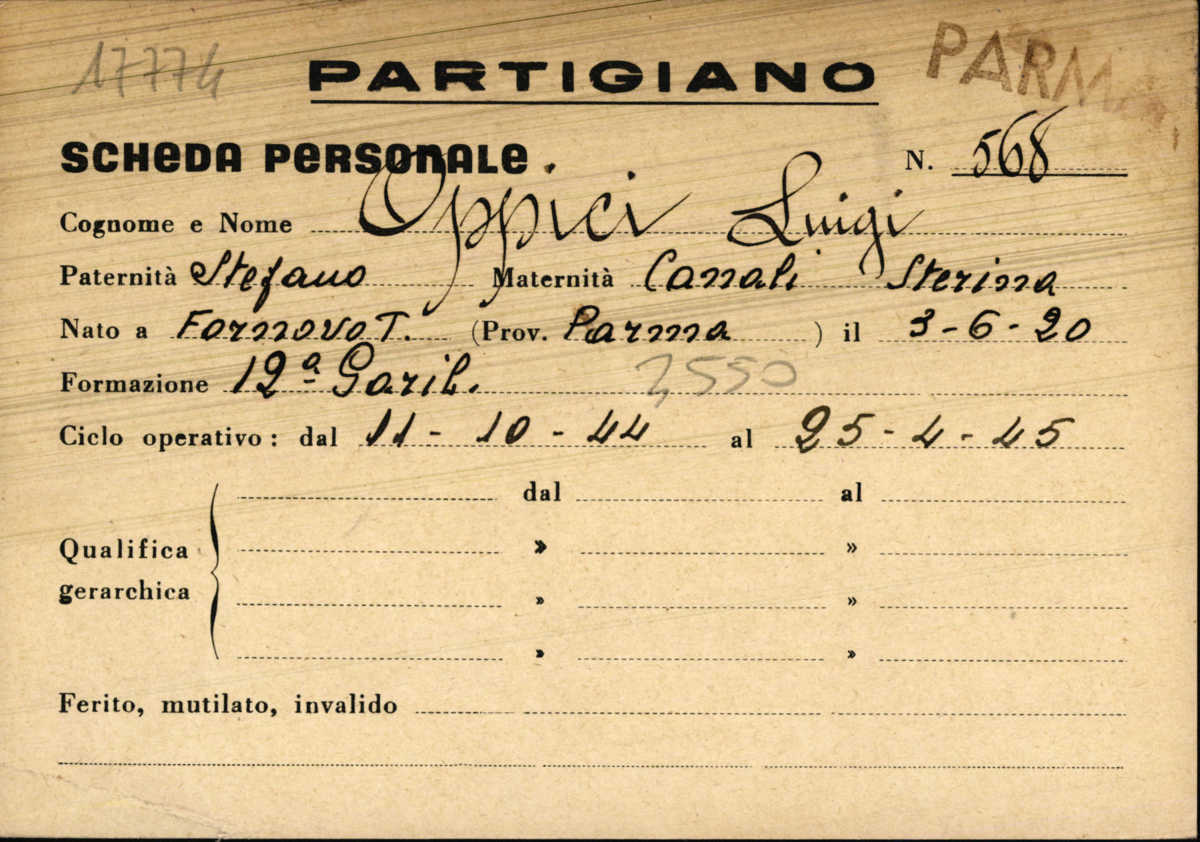 17774 PARTIGIANO PARMA
SCHEDA PERSONALE N. 568
Cognome e Nome Oppici Luigi
Paternità Stefano Maternità Canali Sterina
Nato a Fornovo T. (Prov. Parma ) il 3-6-20
Formazione 12ª Garib. 2550
Ciclo operativo: dal 11-10-44 al 25-4-45
dal al
Qualifica » »
gerarchica » »
» »
Ferito, mutilato, invalido